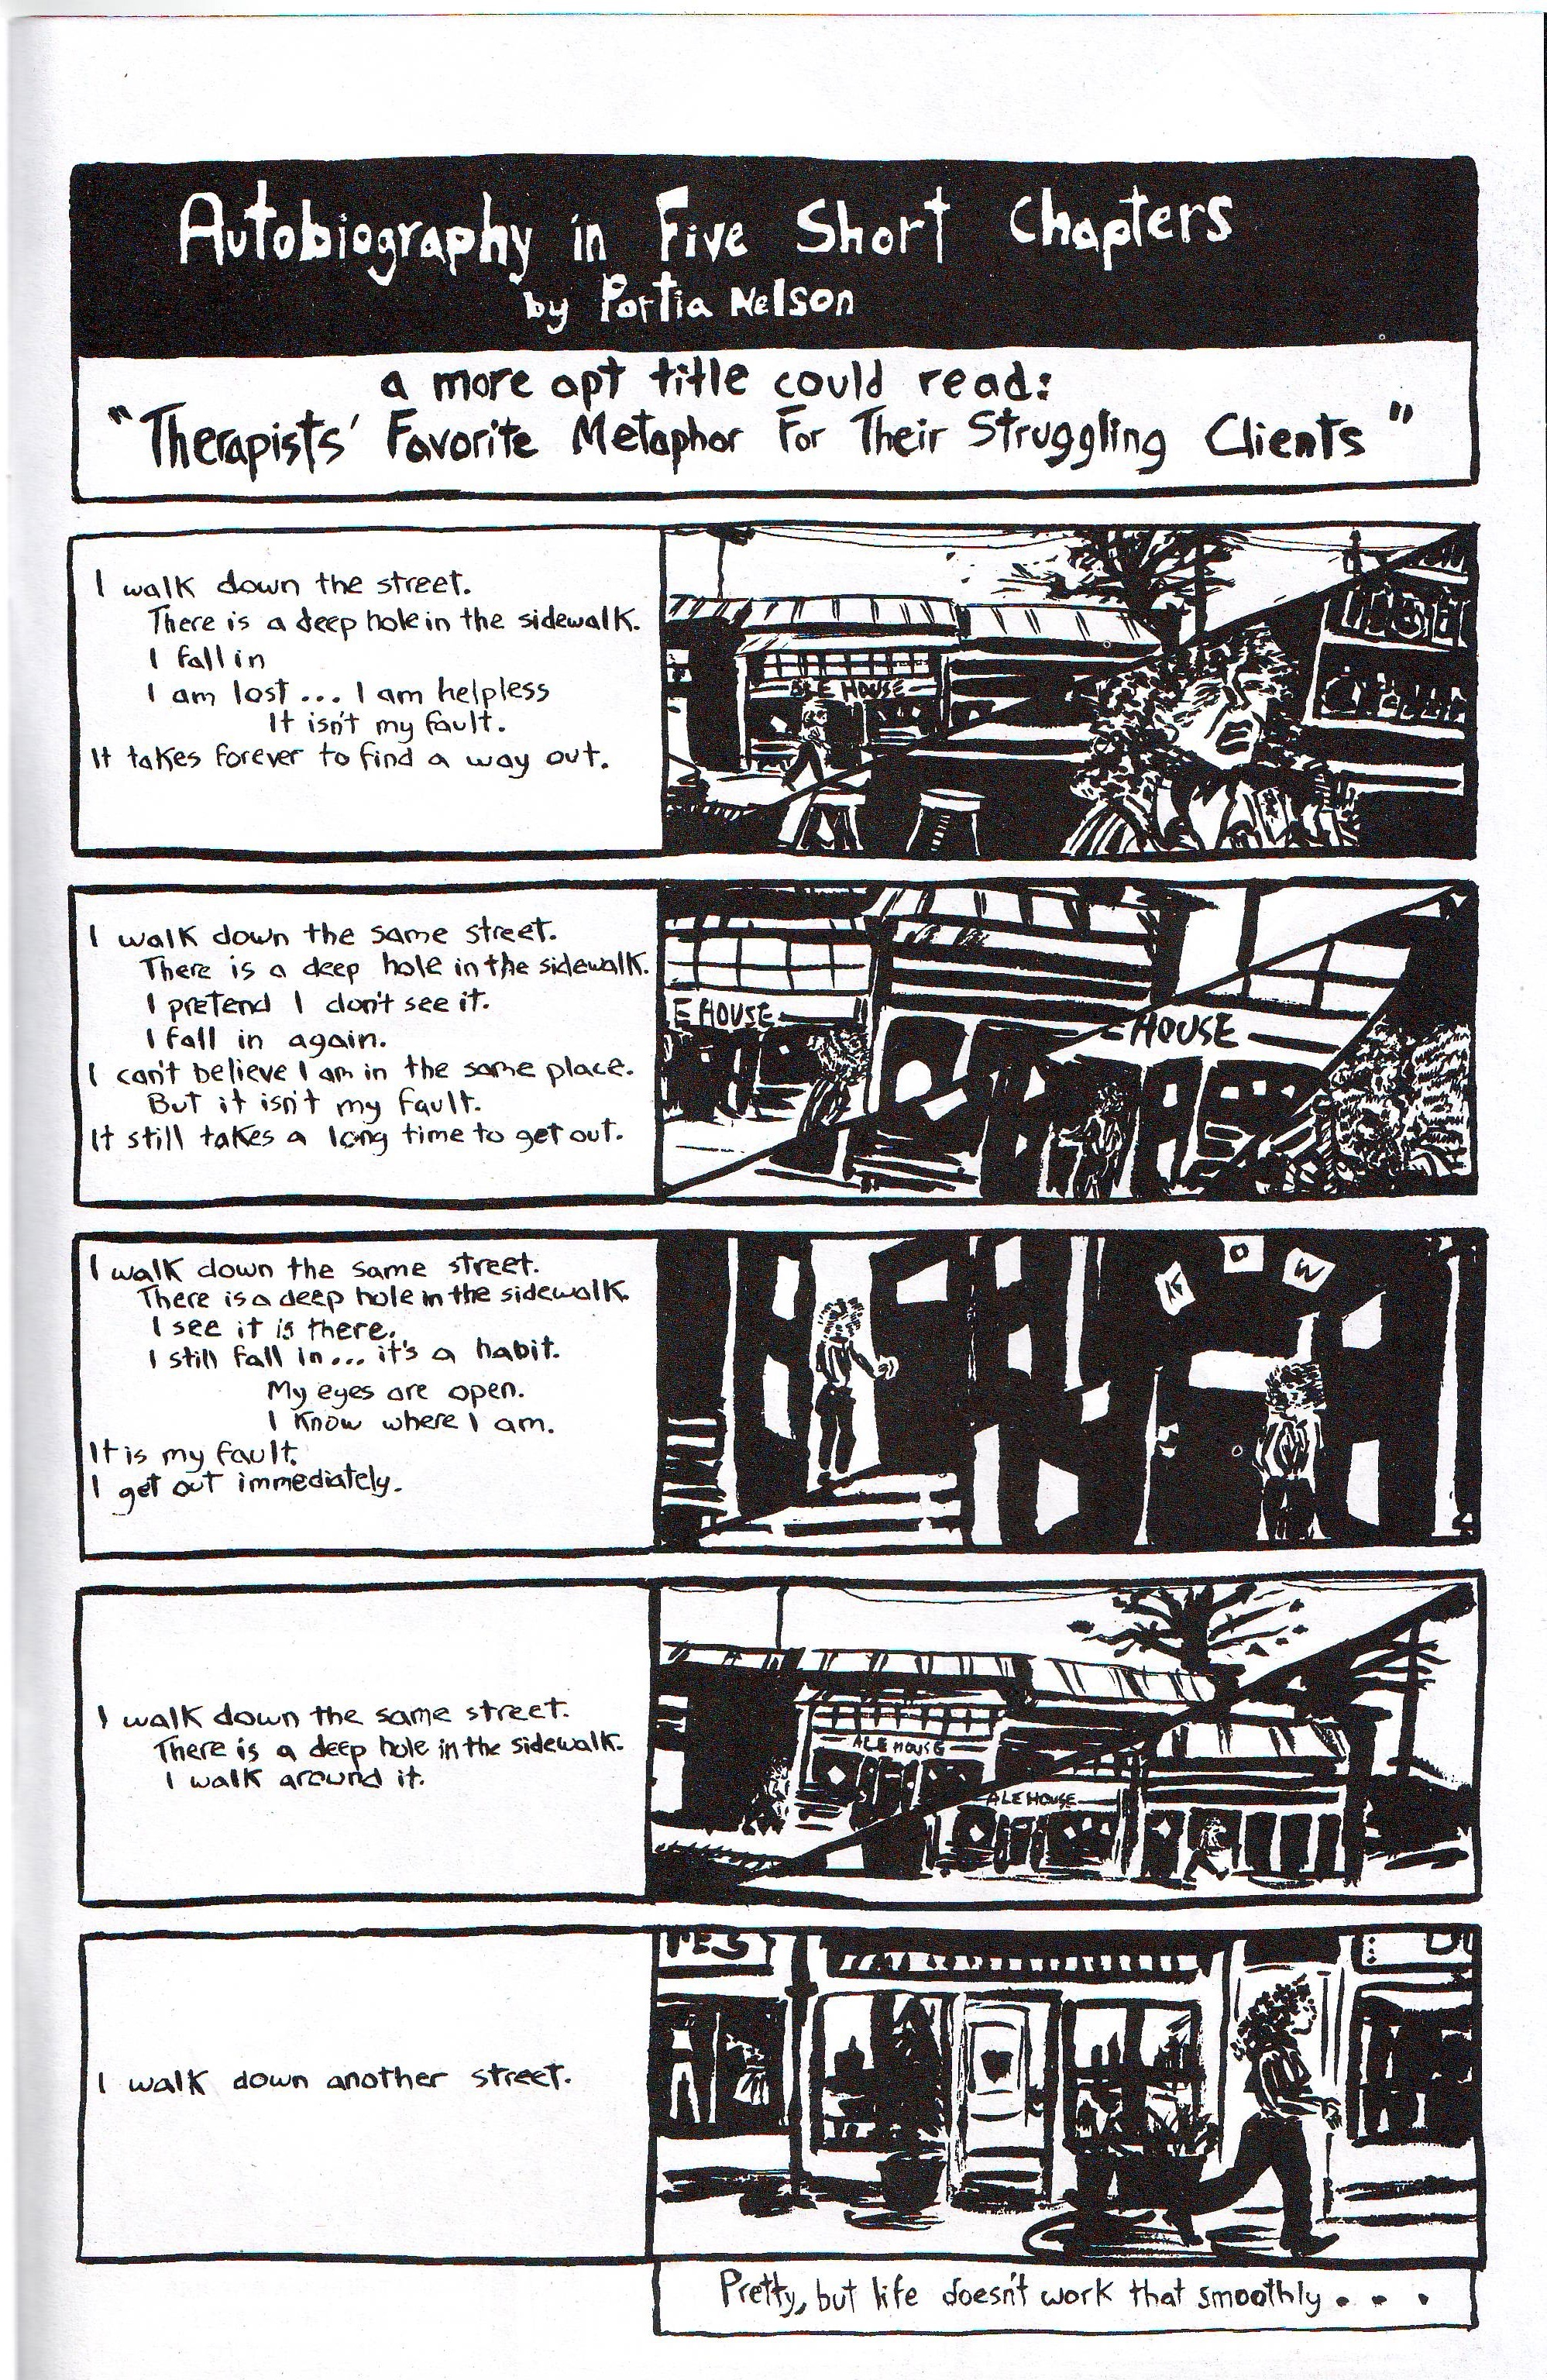 Autobiography in Five Short Chapters
by Portia Nelson
a more apt title could read:
"Therapists' Favorite Metaphor For Their Struggling Clients"
I walk down the street.
There is a deep hole in the sidewalk.
I fall in
I am lost... I am helpless
It isn't my fault.
It takes forever to find a way out.
ALE HOUSE
I walk down the same street.
There is a deep hole in the sidewalk.
I pretend I don't see it.
I fall in again.
I can't believe I am in the same place.
But it isn't my fault.
It still takes a long time to get out.
E HOUSE
HOUSE
I walk down the same street.
There is a deep hole in the sidewalk.
I see it is there.
I still fall in... it's a habit.
My eyes are open.
I know where I am.
It is my fault.
I get out immediately.
K O W
I walk down the same street.
There is a deep hole in the sidewalk.
I walk around it.
ALE HOUSE
ALE HOUSE
I walk down another street.
Pretty, but life doesn't work that smoothly . . .